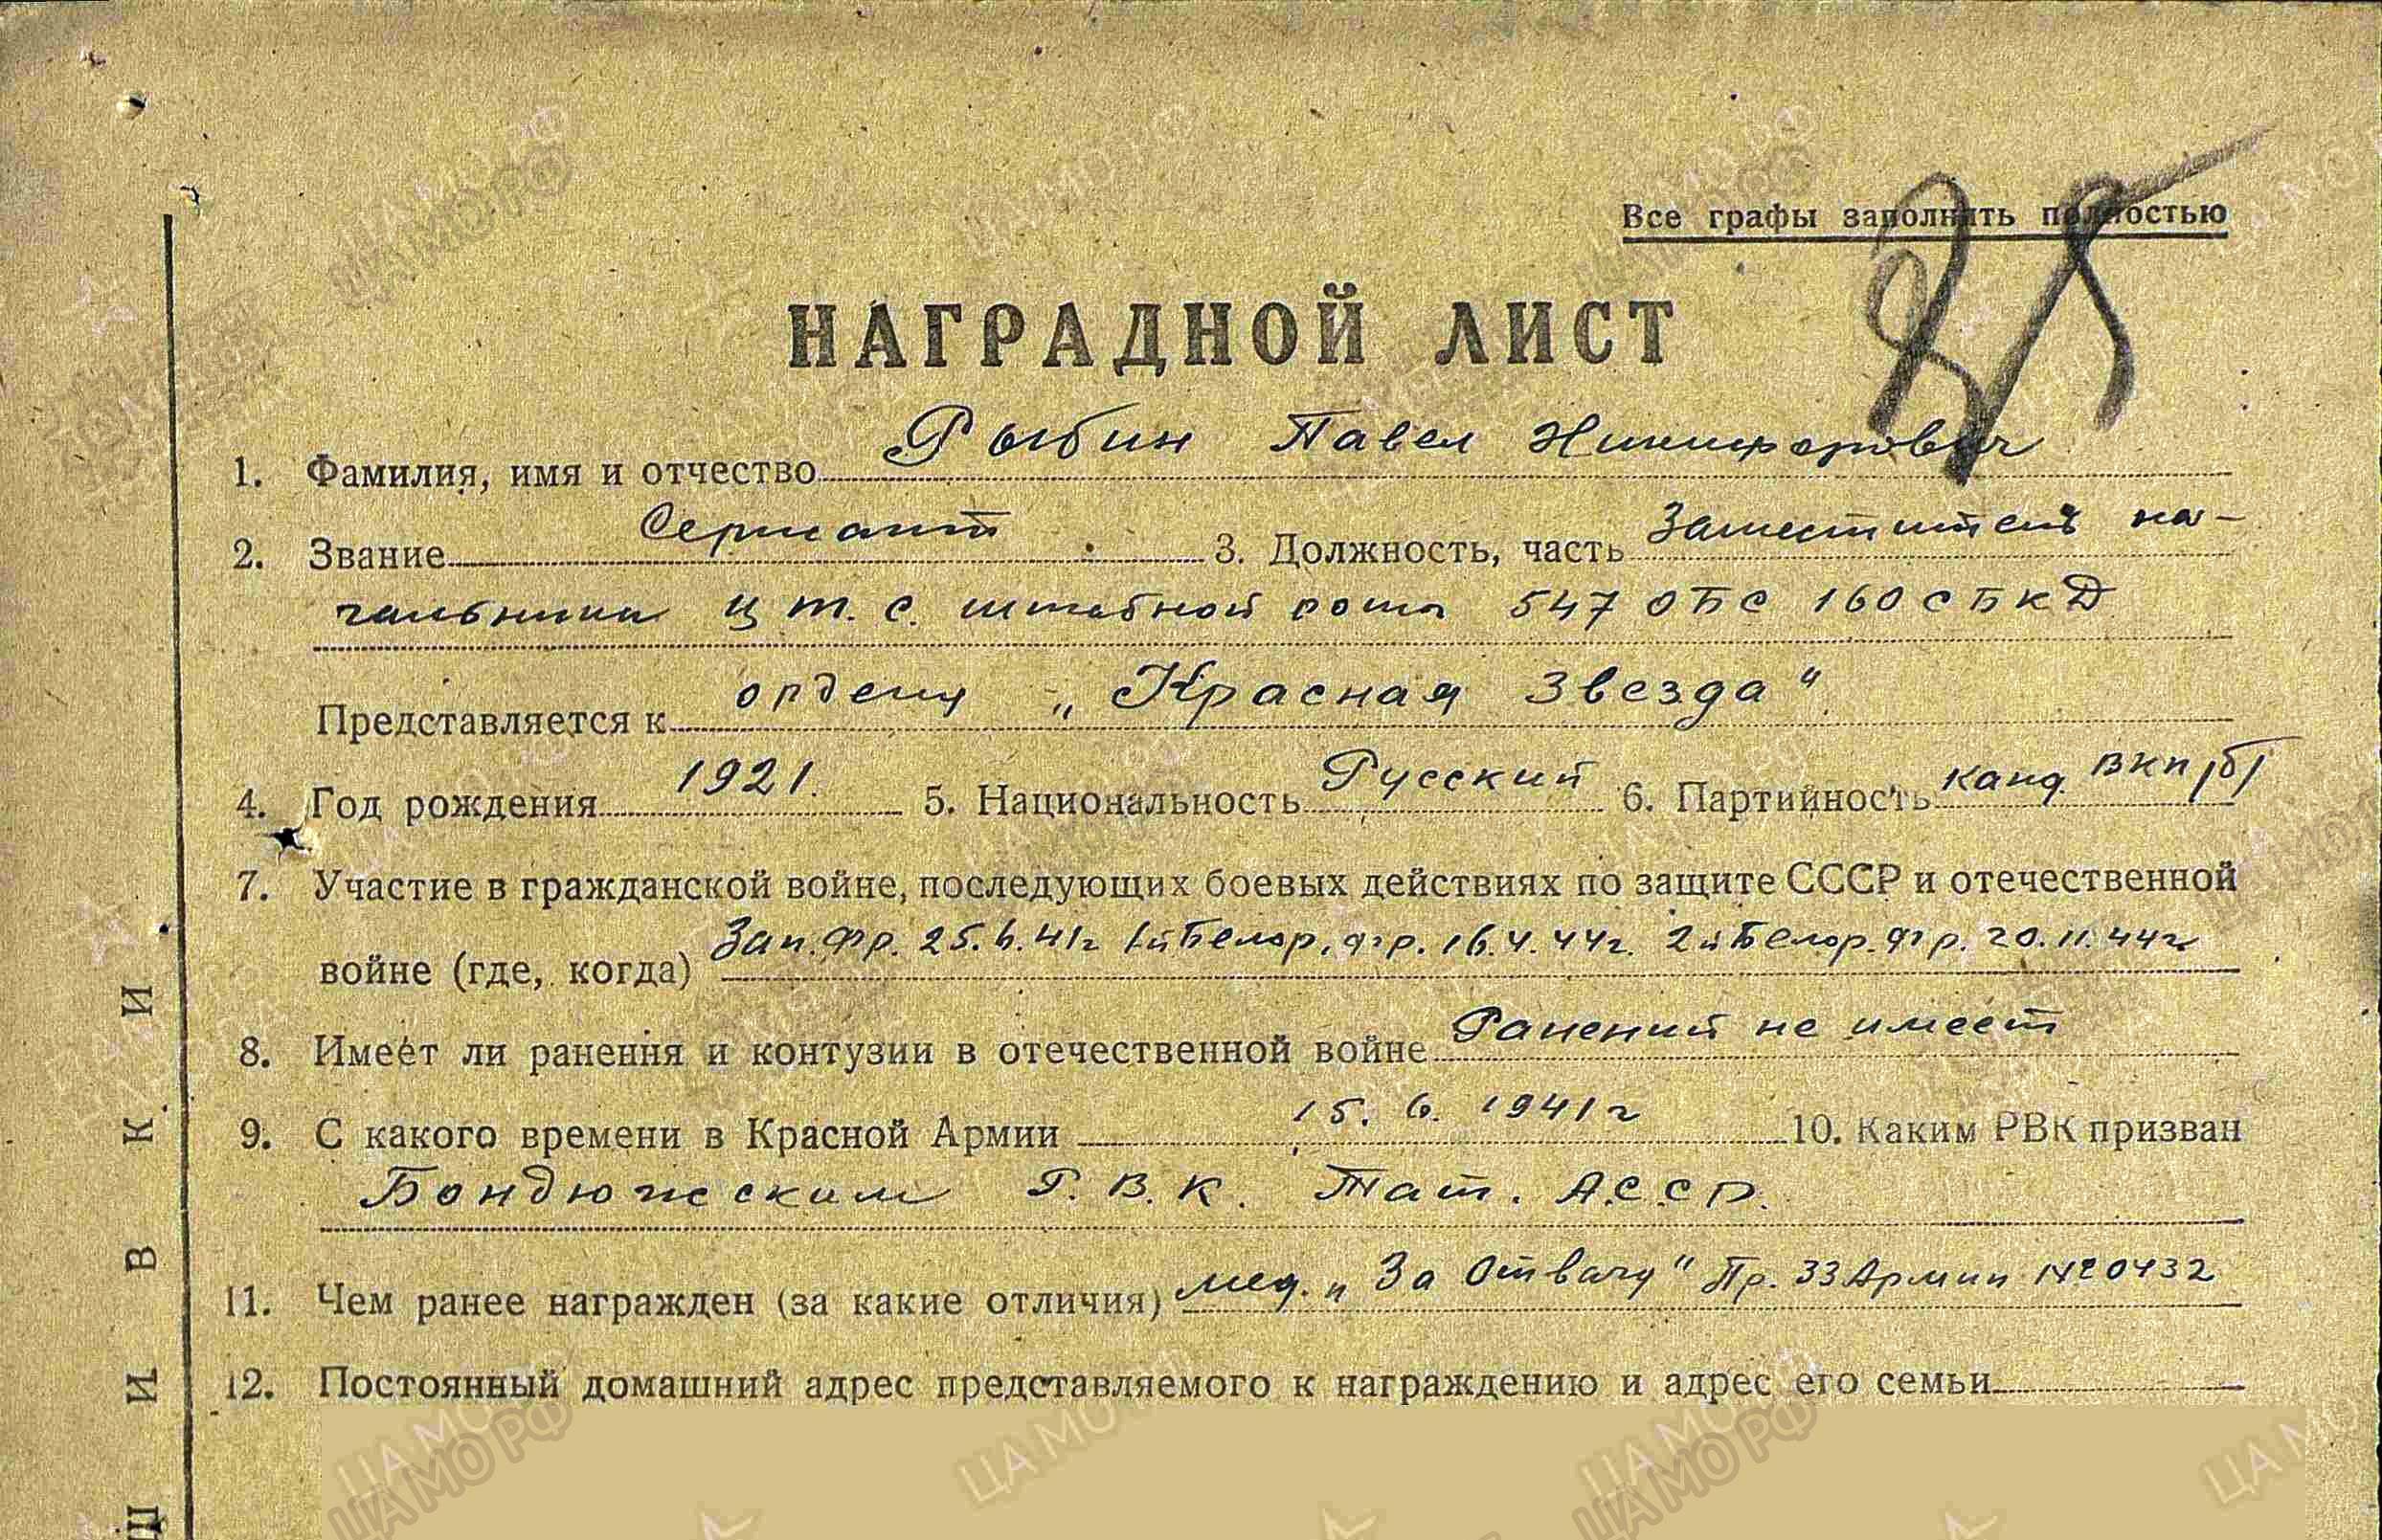 Все графы заполнять полностью
НАГРАДНОЙ ЛИСТ
1. Фамилия, имя и отчество Рыбин Павел Никифорович
2. Звание Сержант 3. Должность, часть Заместитель на-
чальника Ц.Т.С. штабной роты 547 ОБС 160 СБКД
Представляется к ордену „Красная Звезда"
4. Год рождения 1921. 5. Национальность Русский 6. Партийность канд. ВКП/б/
7. Участие в гражданской войне, последующих боевых действиях по защите СССР и отечественной
войне (где, когда) Зап. Фр. 25.6.41г 1й Белор. фр. 16.4.44г. 2й Белор. фр. 20.11.44г
8. Имеет ли ранения и контузии в отечественной войне Ранений не имеет
9. С какого времени в Красной Армии 15. 6. 1941г 10. Каким РВК призван
Бондюжским Р.В.К. Тат. А.С.С.Р.
11. Чем ранее награжден (за какие отличия) мед. „За Отвагу" Пр. 33 Армии №0432
12. Постоянный домашний адрес представляемого к награждению и адрес его семьи
Ш И В К И
ЦАМО РФ